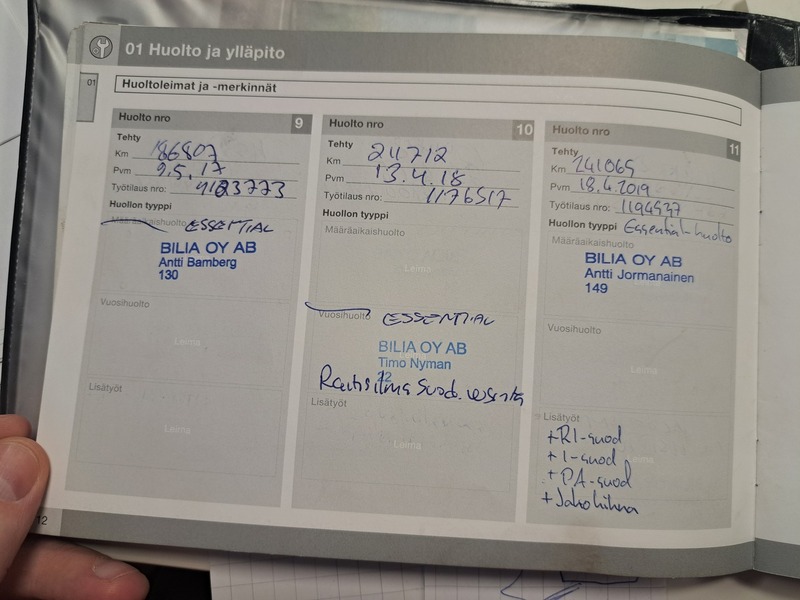 01 Huolto ja ylläpito
01
Huoltoleimat ja -merkinnät
Huolto nro 9
Tehty
Km 186807
Pvm 9.5.17
Työtilaus nro:
Huollon tyyppi
Määräaikaishuolto ESSENTIAL
BILIA OY AB
Antti Bamberg
130
Vuosihuolto
Leima
Lisätyöt
Leima
Huolto nro 10
Tehty
Km 211712
Pvm 13.4.18
Työtilaus nro: 1176517
Huollon tyyppi
Määräaikaishuolto
Leima
Vuosihuolto ESSENTIAL
BILIA OY AB
Timo Nyman
22
Raitisilma suod.
Lisätyöt
Leima
Huolto nro 11
Tehty
Km 241065
Pvm 18.4.2019
Työtilaus nro: 1194537
Huollon tyyppi Essential-huolto
Määräaikaishuolto
BILIA OY AB
Antti Jormanainen
149
Vuosihuolto
Leima
Lisätyöt
+RI-suod
+I-suod
+PA-suod
+Jakohihna
12